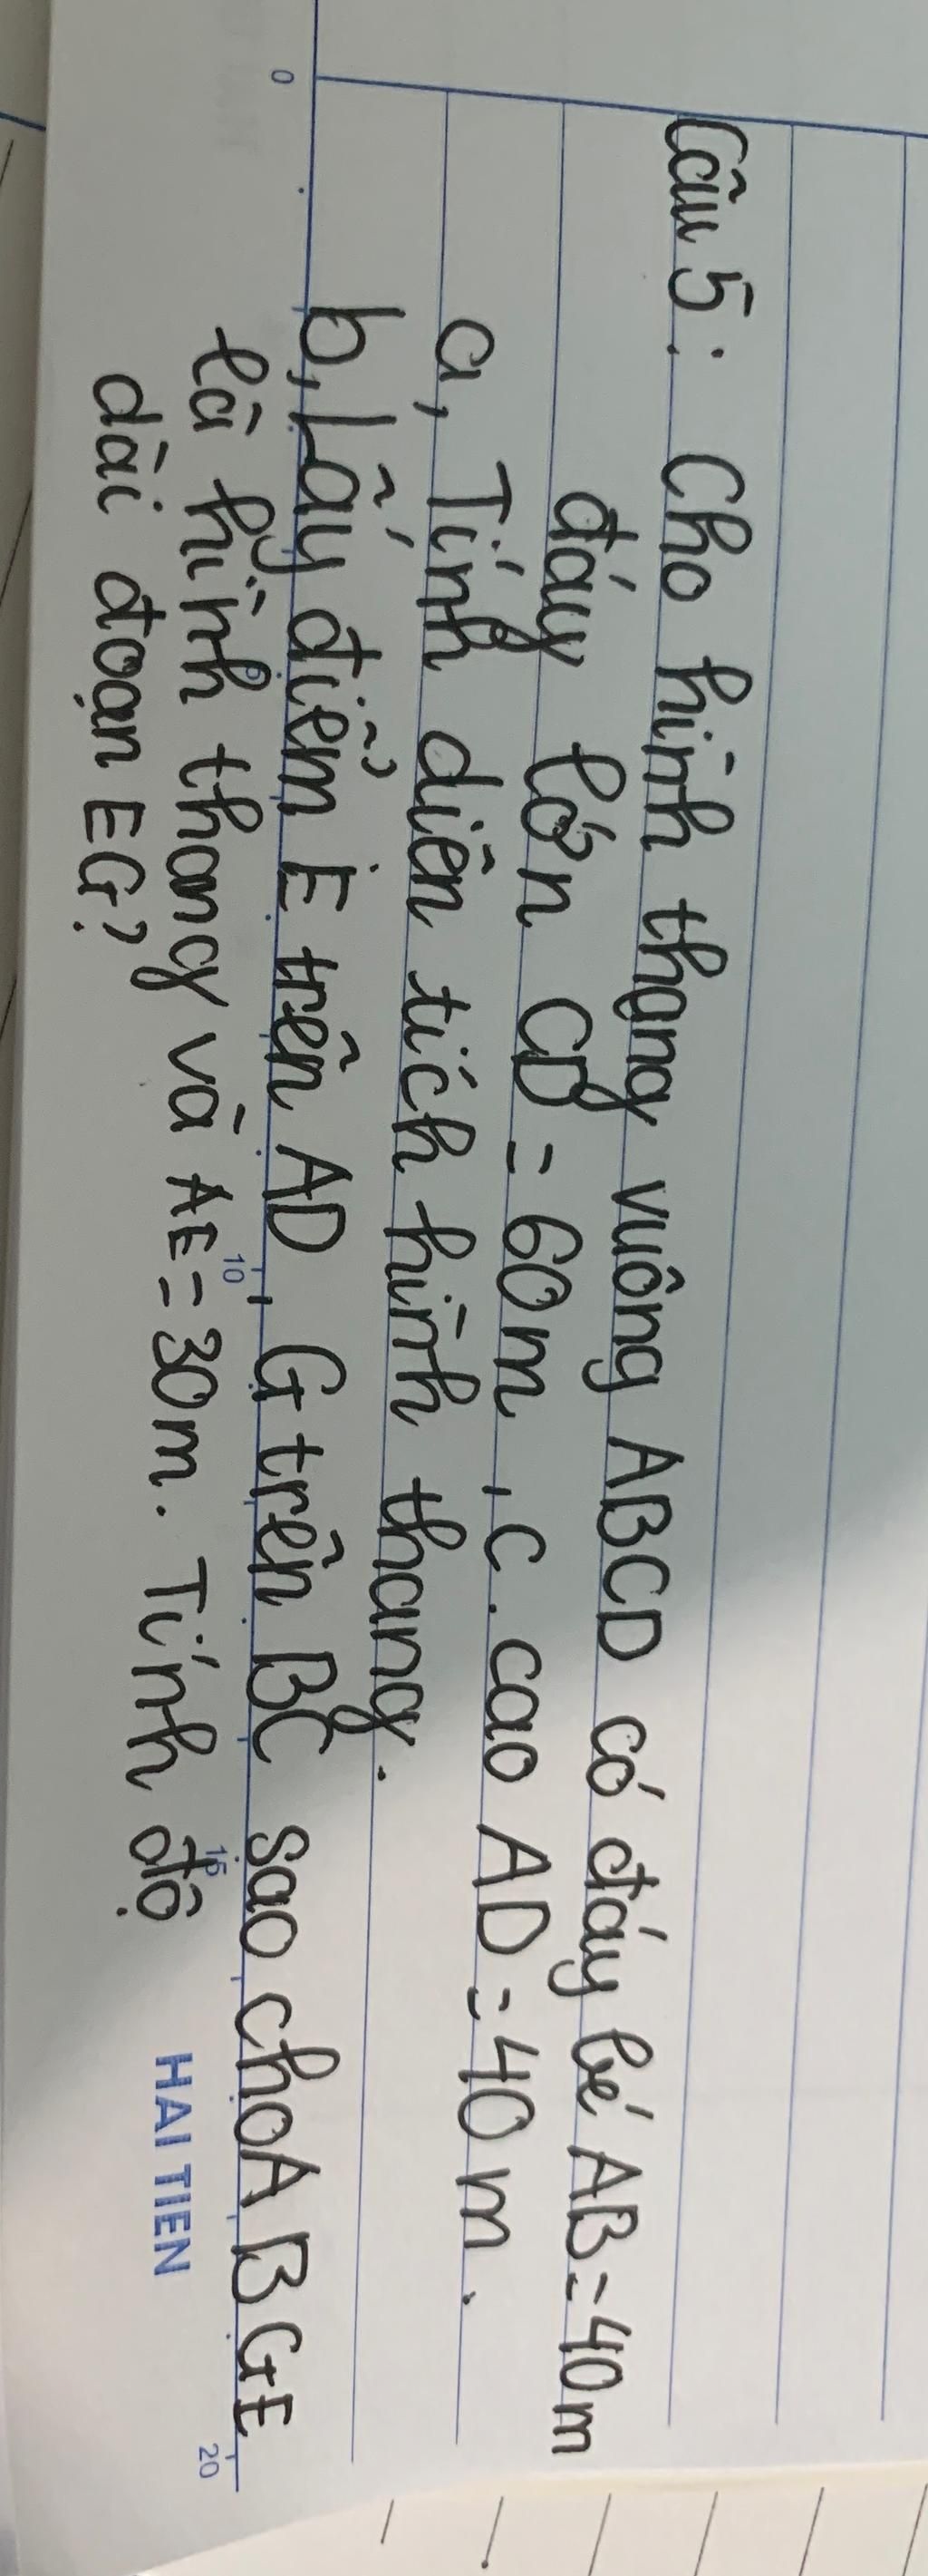 Câu 5: Cho hình thang vuông ABCD có đáy bé AB = 40m
đáy lớn CD = 60m, c. cao AD = 40m.
a, Tính diên tích hình thang.
b, Lấy điểm E trên AD, G trên BC sao cho ABGE
là hình thang và AE = 30m. Tính độ
dài đoạn EG?
0
5
10
15
20
HAI TIEN